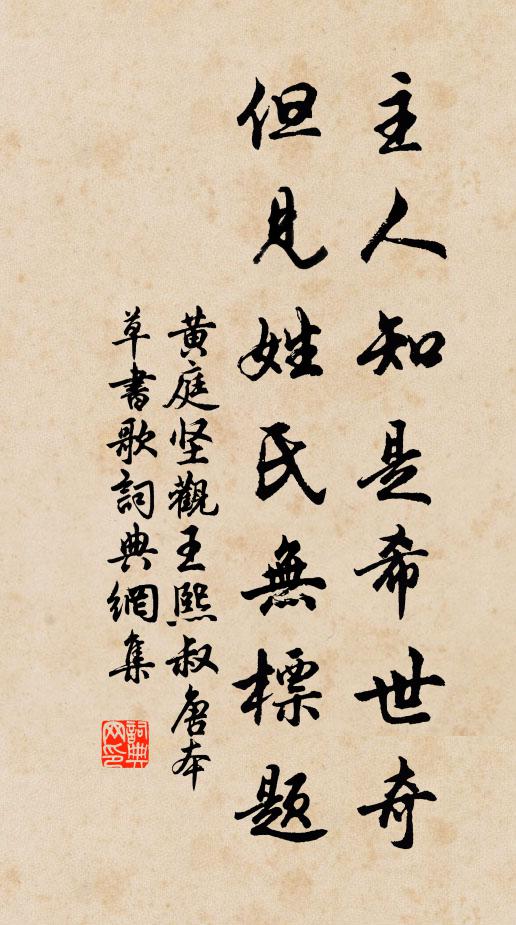 主人知是希世奇
但見姓氏無標題
黄庭坚觀王熙叔唐本
草書歌詞典網集
詞典网印